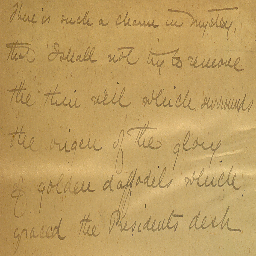 There is such a charm in mystery,
that I shall not try to remove
the thin veil which surrounds
the origin of the glory
of golden daffodils which
graced the Presidents desk